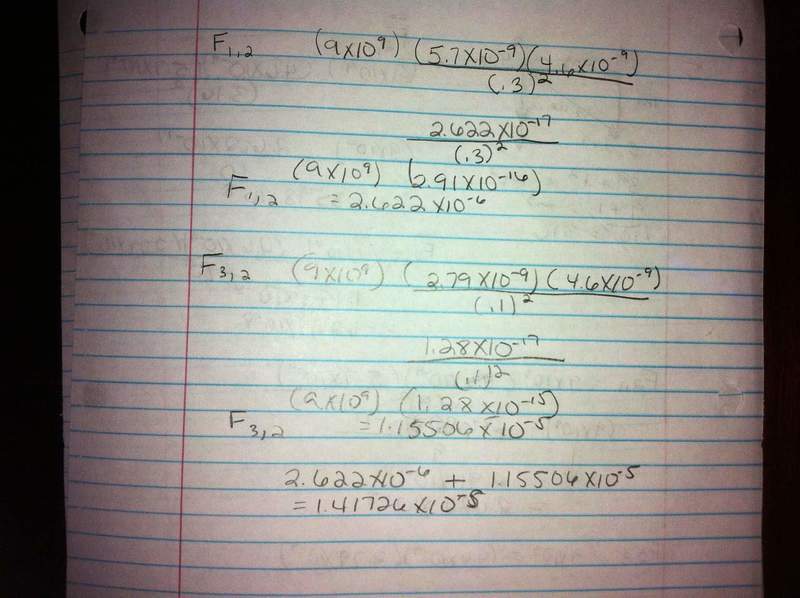 F1,2 (9x10⁹) (5.7x10⁻⁹)(4.6x10⁻⁹)
(.3)²
2.622x10⁻¹⁷
(.3)²
(9x10⁹) (2.91x10⁻¹⁶)
F1,2 = 2.622x10⁻⁶
F3,2 (9x10⁹) (2.79x10⁻⁹)(4.6x10⁻⁹)
(.1)²
1.28x10⁻¹⁷
(.1)²
(9x10⁹) (1.28x10⁻¹⁵)
F3,2 = 1.15506x10⁻⁵
2.622x10⁻⁶ + 1.15506x10⁻⁵
= 1.41726x10⁻⁵